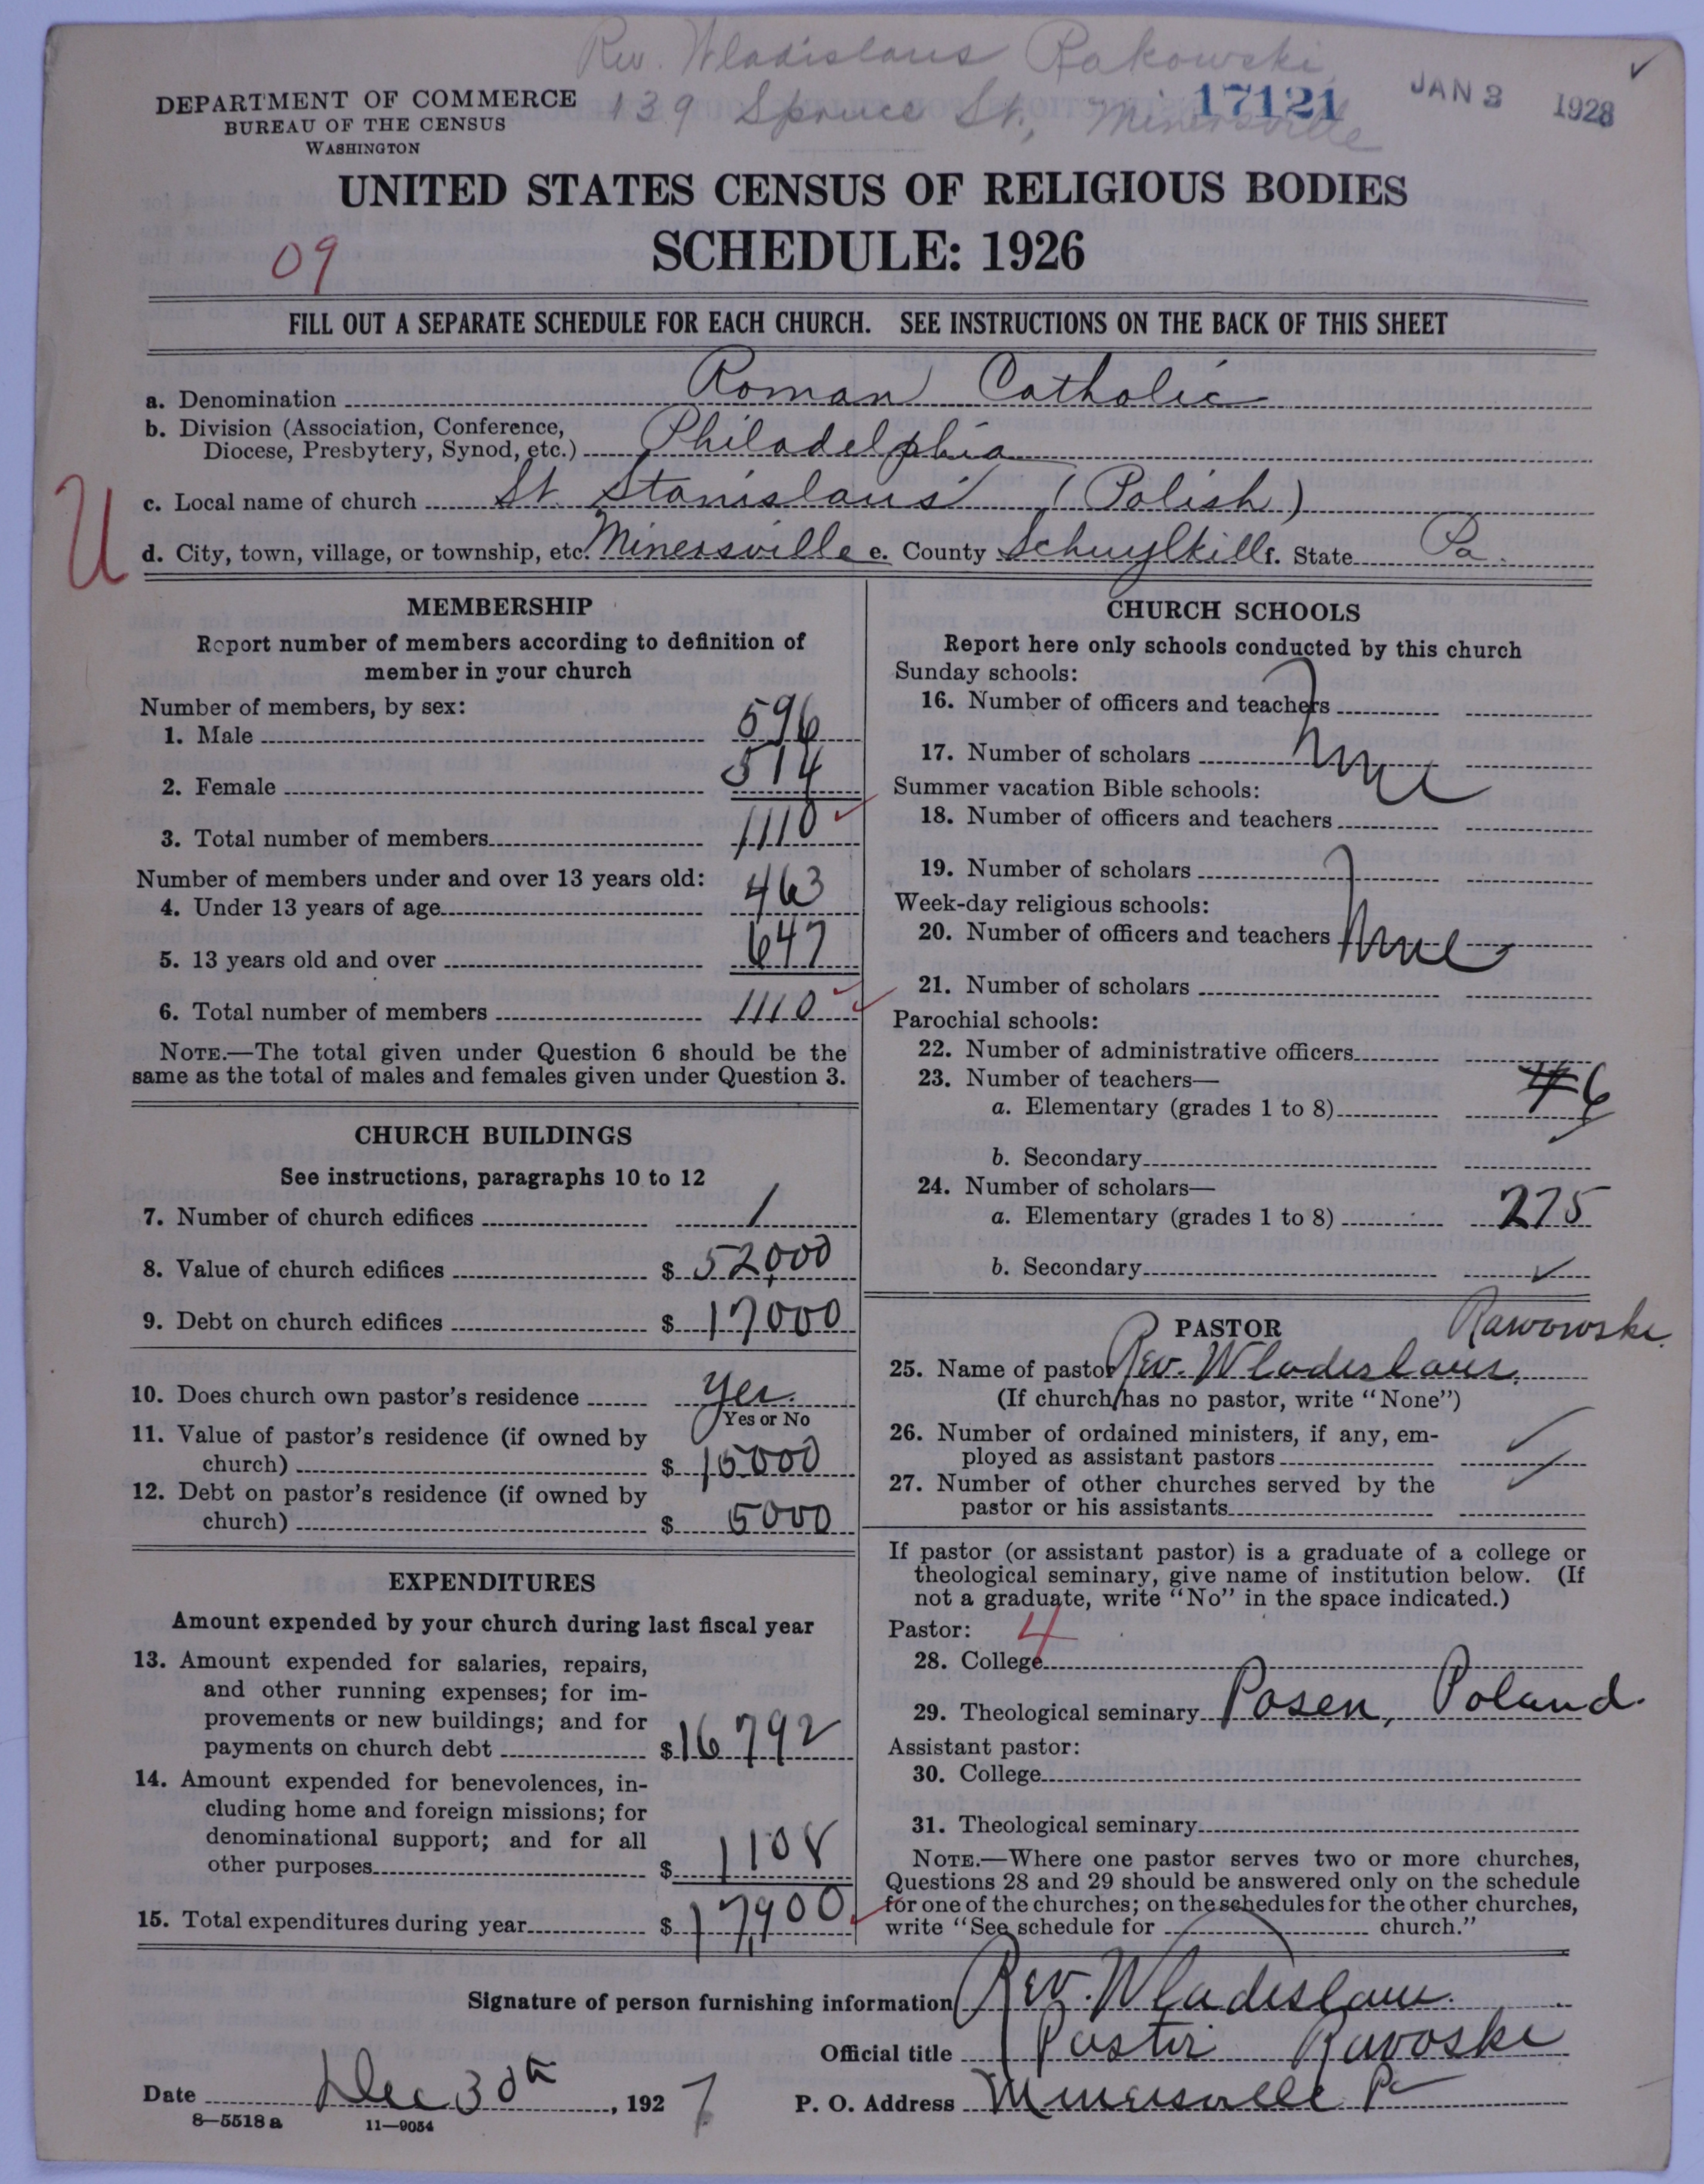 Rev. Wladislaus Rakowski
139 Spruce St., Minersville
17121
JAN 3 1928
DEPARTMENT OF COMMERCE
BUREAU OF THE CENSUS
WASHINGTON
UNITED STATES CENSUS OF RELIGIOUS BODIES
SCHEDULE: 1926
09
FILL OUT A SEPARATE SCHEDULE FOR EACH CHURCH. SEE INSTRUCTIONS ON THE BACK OF THIS SHEET
a. Denomination Roman Catholic
b. Division (Association, Conference,
Diocese, Presbytery, Synod, etc.) Philadelphia
U
c. Local name of church St. Stanislaus (Polish)
d. City, town, village, or township, etc. Minersville e. County Schuylkill f. State Pa.
MEMBERSHIP
Report number of members according to definition of
member in your church
Number of members, by sex:
1. Male 596
2. Female 514
3. Total number of members 1110
Number of members under and over 13 years old:
4. Under 13 years of age 463
5. 13 years old and over 647
6. Total number of members 1110
NOTE.—The total given under Question 6 should be the
same as the total of males and females given under Question 3.
CHURCH BUILDINGS
See instructions, paragraphs 10 to 12
7. Number of church edifices 1
8. Value of church edifices $ 52,000
9. Debt on church edifices $ 17000
10. Does church own pastor's residence yes.
Yes or No
11. Value of pastor's residence (if owned by
church) $ 15000
12. Debt on pastor's residence (if owned by
church) $ 5000
EXPENDITURES
Amount expended by your church during last fiscal year
13. Amount expended for salaries, repairs,
and other running expenses; for im-
provements or new buildings; and for
payments on church debt $ 16792
14. Amount expended for benevolences, in-
cluding home and foreign missions; for
denominational support; and for all
other purposes $ 1108
15. Total expenditures during year $ 17,900
CHURCH SCHOOLS
Report here only schools conducted by this church
Sunday schools:
16. Number of officers and teachers
17. Number of scholars None
Summer vacation Bible schools:
18. Number of officers and teachers
19. Number of scholars
Week-day religious schools:
20. Number of officers and teachers None
21. Number of scholars
Parochial schools:
22. Number of administrative officers
23. Number of teachers—
a. Elementary (grades 1 to 8) 6
b. Secondary
24. Number of scholars—
a. Elementary (grades 1 to 8) 275
b. Secondary
PASTOR
Rawowski
25. Name of pastor Rev. Wladislaus
(If church has no pastor, write "None")
26. Number of ordained ministers, if any, em-
ployed as assistant pastors
27. Number of other churches served by the
pastor or his assistants
If pastor (or assistant pastor) is a graduate of a college or
theological seminary, give name of institution below. (If
not a graduate, write "No" in the space indicated.)
Pastor: 4
28. College
29. Theological seminary Posen, Poland.
Assistant pastor:
30. College
31. Theological seminary
NOTE.—Where one pastor serves two or more churches,
Questions 28 and 29 should be answered only on the schedule
for one of the churches; on the schedules for the other churches,
write "See schedule for church."
Signature of person furnishing information Rev. Wladislaus
Official title Pastor Ravoski
Date Dec 30th, 1927 P. O. Address Minersville Pa
8—5518a 11—9054